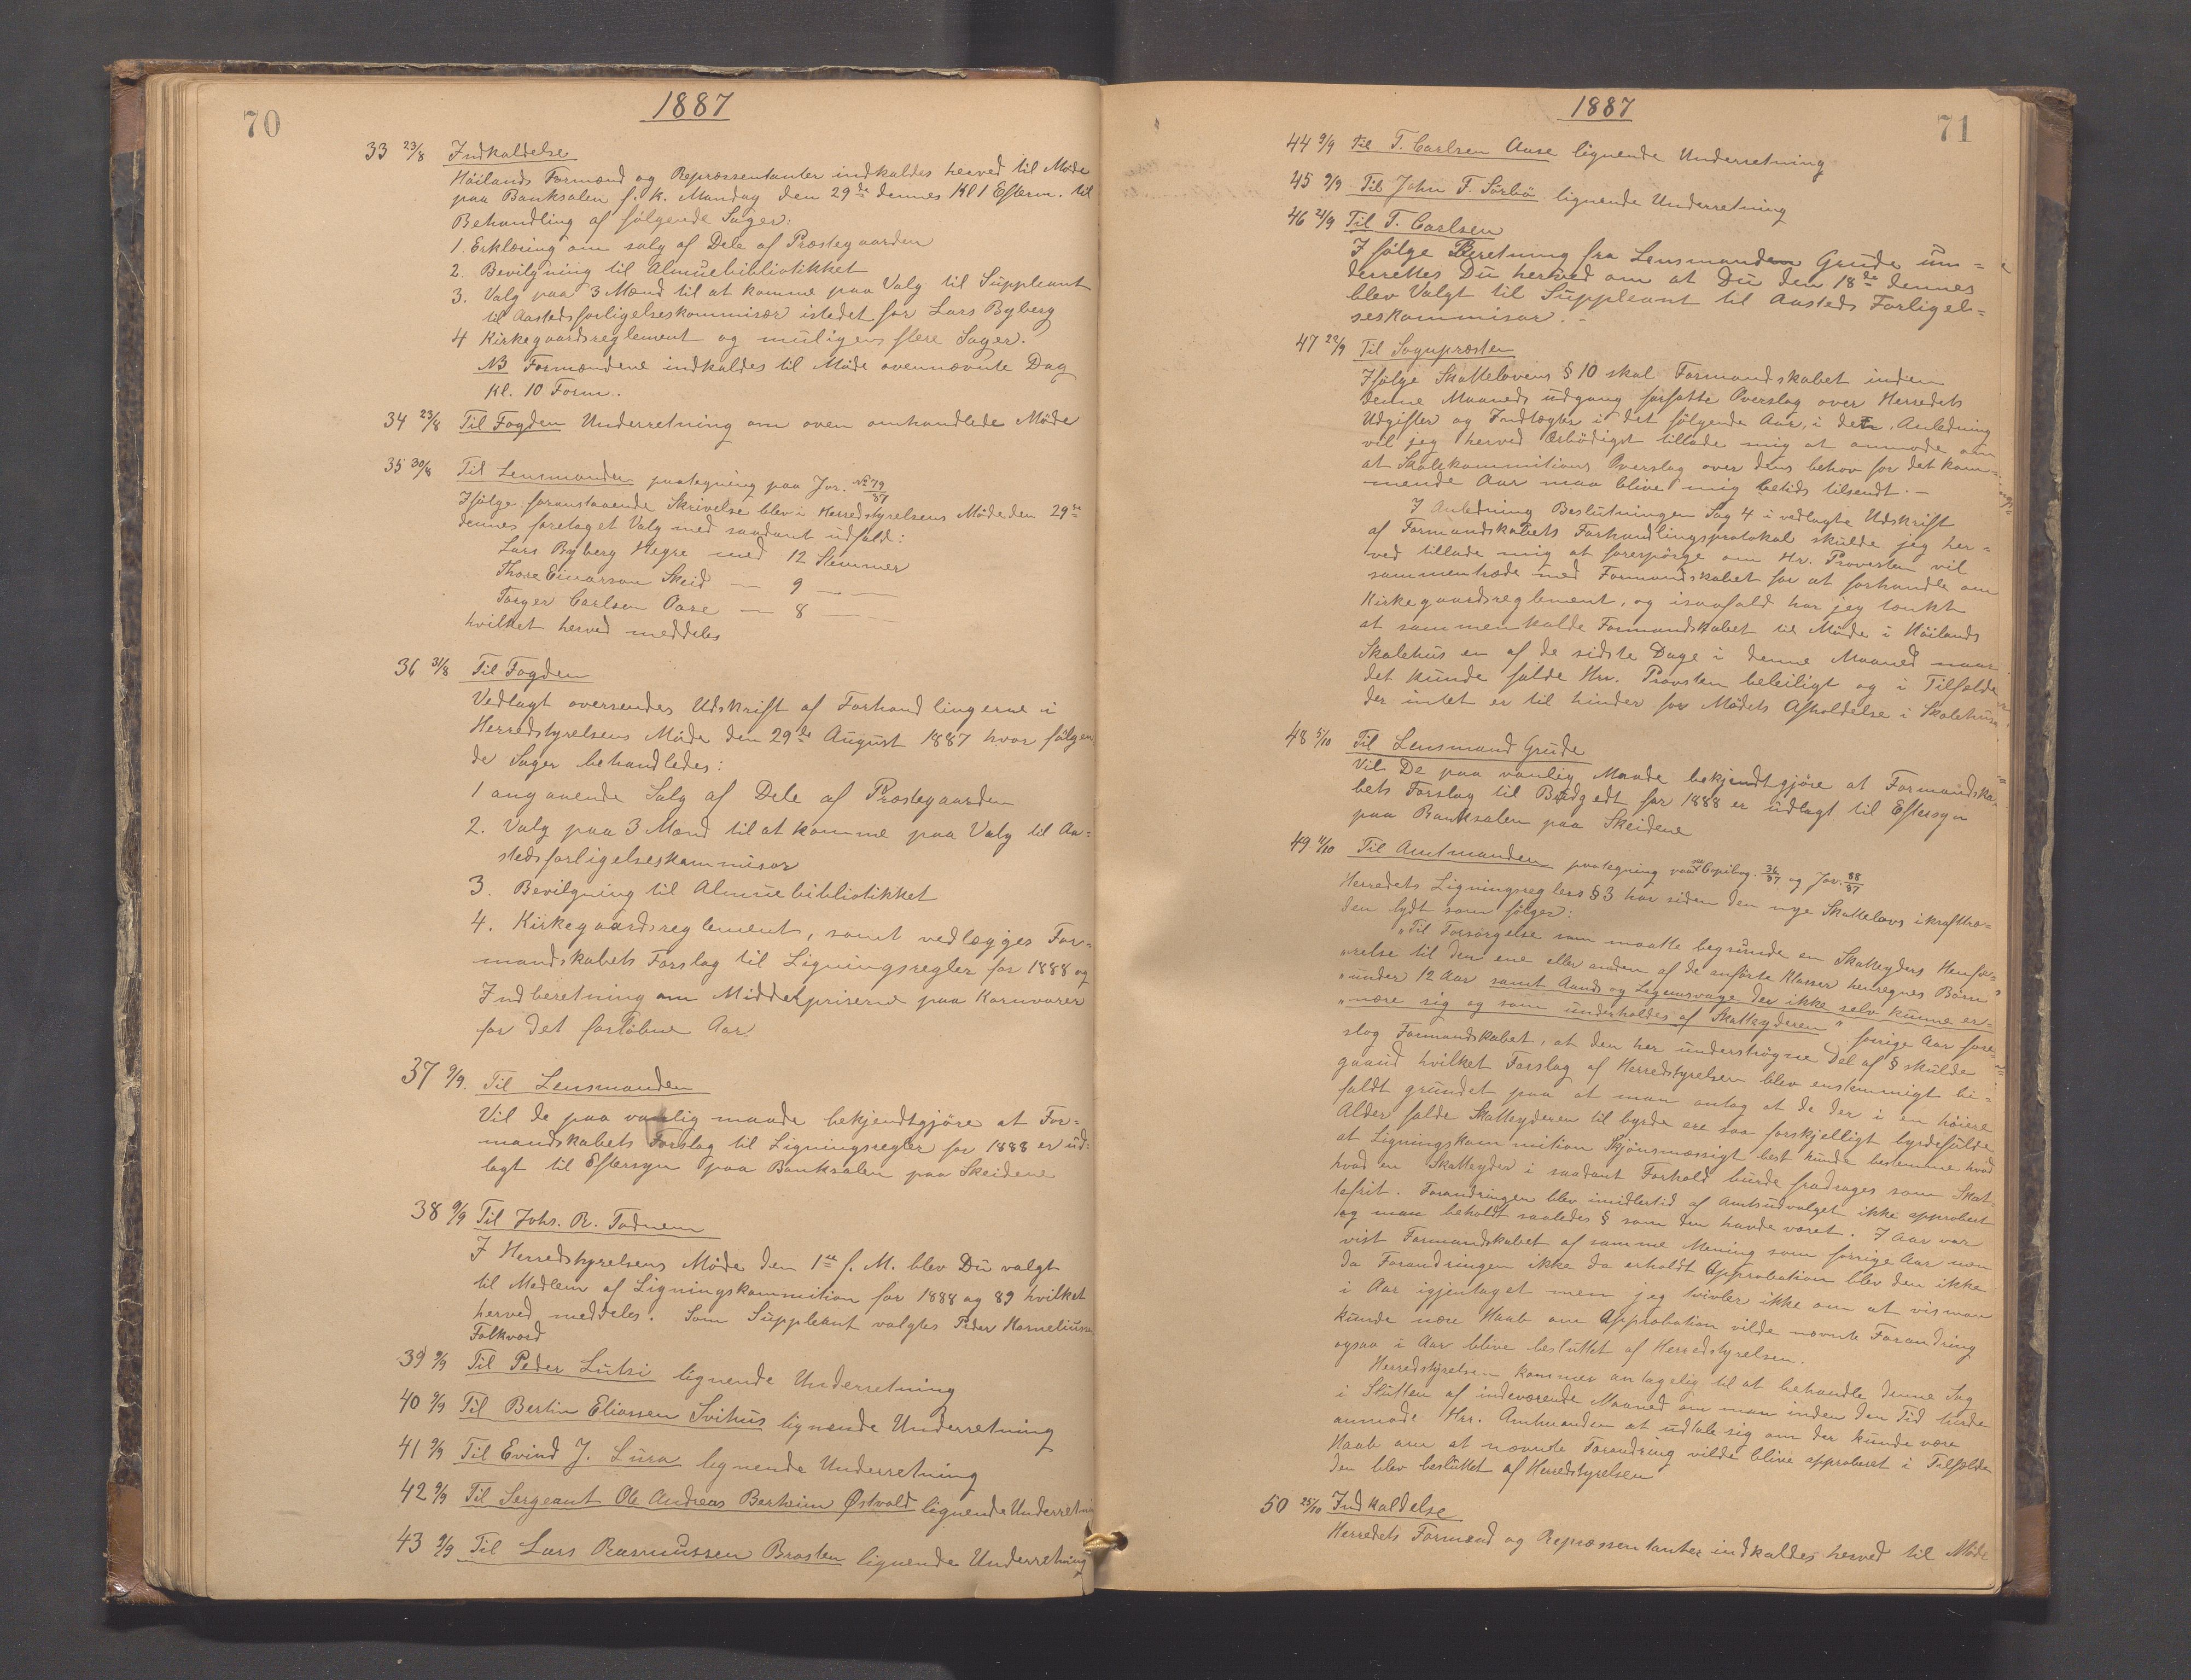 70
1887
33 23/8 Indkaldelse
Höilands Formænd og Repræsentanter indkaldes herved til Möde
paa Banksalen f. k. Mandag den 29de dennes Kl 1 Efterm. til
Behandling af følgende Sager:
1. Erklæring om salg af Dele af Præstegaarden
2. Bevilgning til Almuebibliotikket
3. Valg paa 3 Mænd til at komme paa Valg til Suppleant
til Aastedsforligelseskommisær istedet for Lars Byberg
4 Kirkegaardsreglement og muligens flere Sager.
NB Formændene indkaldes til Möde ovennævnte Dag
Kl. 10 Form.
34 23/8 Til Fogden Underretning om oven omhandlede Möde
35 30/8 Til Lensmanden paategning paa Jor. No 79/87
Ifölge foranstaaende Skrivelse blev i Herredstyrelsens Möde den 29de
dennes foretaget Valg med saadant udfald:
Lars Byberg Hegre med 12 Stemmer
Thore Einarson Skeid — 9 — —
Torger Carlsen Aase — 8 — —
hvilket herved meddeles
36 31/8 Til Fogden
Vedlagt oversendes Udskrift af Forhandlingerne i
Herredstyrelsens Möde den 29de August 1887 hvor fölgen
de Sager behandledes:
1 angaaende Salg af Dele af Præstegaarden
2. Valg paa 3 Mænd til at komme paa Valg til Aa=
stedsforligelseskommisær
3. Bevilgning til Almuebibliotikket
4. Kirkegaardsreglement, samt vedlægges For=
mandskabets Forslag til Ligningsregler for 1888 og
Indberetning om Middelpriserne paa Kornvarer
for det forløbne Aar
37 9/9. Til Lensmanden
Vil de paa vanlig maade bekjendtgjöre at For=
mandskabets Forslag til Ligningsregler for 1888 er ud=
lagt til Eftersyn paa Banksalen paa Skeidene
38 9/9 Til Johs. R. Tadnem
I Herredstyrelsens Möde den 1ste f. M. blev Du valgt
til Medlem af Ligningskommition for 1888 og 89 hvilket
herved meddeles. Som Suppleant valgtes Peder Korneliussen
Folkvord
39 9/9 Til Peder Lutsi lignende Underretning
40 9/9 Til Bertin Eliassen Svihus lignende Underretning
41 9/9 Til Evind J. Lura lignende Underretning
42 9/9 Til Sergeant Ole Andreas Bertheim Østvold lignende Underretning
43 9/9 Til Lars Rasmussen Brasten lignende Underretning
1887
71
44 9/9 Til T. Carlsen Aase lignende Underretning
45 9/9 Til John T. Sörbö lignende Underretning
46 21/9 Til T. Carlsen
I fölge Beretning fra Lensmanden Grude un=
derrettes Du herved om at Du den 18de dennes
blev Valgt til Suppleant til Aasteds Forligel=
seskommisær.
47 22/9 Til Sognpresten
Ifölge Skattelovens § 10 skal Formandskabet inden
denne Maaneds udgang forfatte Overslag over Herredets
Udgifter og Indtægter i det følgende Aar, i den Anledning
vil jeg herved ærbödigst tillade mig at anmode om
at Skolekommitions Overslag over dens behov for det kom=
mende Aar maa blive mig betids tilsendt. —
I Anledning Beslutningen Sag 4 i vedlagte Udskrift
af Formandskabets Forhandlingsprotokol skulde jeg her=
ved tillade mig at forespörge om Hr. Provesten vil
sammentræde med Formandskabet for at forhandle om
Kirkegaardsreglement, og isaafald har jeg tænkt
at sammenkalde Formandskabet til Möde i Höilands
Skolehus en af de sidste Dage i denne Maaned naar
det kunde falde Hrr. Provsten beleiligt og i Tilfælde
der intet er til hinder for Mödets Afholdelse i Skolehuset
48 5/10 Til Lensmand Grude
Vil De paa vanlig Maade bekjendtgjöre at Formandska=
bets Forslag til Budgedt for 1888 er udlagt til Eftersyn
paa Banksalen paa Skeidene
49 11/10 Til Amtmanden paategning paa Copibog. 36/87 og Jor. 88/87
Herredets Ligningsreglers § 3 har siden den nye Skattelovs ikrafttræ=
den lydt som følger:
"Til Forsørgelse som maatte begrunde en Skatteyders Henfø=
"relse til den ene eller anden af de anførte Klasser henregnes Børn
"under 12 Aar samt Aands og Legemsvage der ikke selv kunne er=
"nære sig og som underholdes af Skatteyderen" forrige Aar fore=
slog Formandskabet, at den her understrøgne Del af § skulde
gaaud hvilket Forslag af Herredstyrelsen blev enstemmigt bi=
faldt grundet paa at man antog at de der i en höiere
Alder falde Skatteyderen til byrde ere saa forskjelligt byrdefulde
at Ligningskommition Skjönsmæssigt best kunde bestemme hvad
hvad en Skatteyder i saadant Forhold burde fradrages som Skat=
tefrit. Forandringen blev imidlertid af Amtsudvalget ikke approbert
og man beholdt saaledes § som den havde været. I Aar var
vist Formandskabet af samme Mening som forrige Aar men
da Forandringen ikke da erholdt Approbation blev den ikke
i Aar igjentaget men jeg tvivler ikke om at vis man
kunde nære Haab om Approbation vilde nævnte Forandring
ogsaa i Aar blive besluttet af Herredstyrelsen.
Herredstyrelsen kommer antagelig til at behandle denne Sag
i Slutten af indeværende Maaned om man inden den Tid turde
anmode Hrr. Amtmanden at udtale sig om der kunde være
Haab om at nævnte Forandring vilde blive approberet i Tilfælde
den blev besluttet af Herredstyrelsen
50 25/10 Indkaldelse
Herredets Formænd og Repræssentanter indkaldes herved til Möde